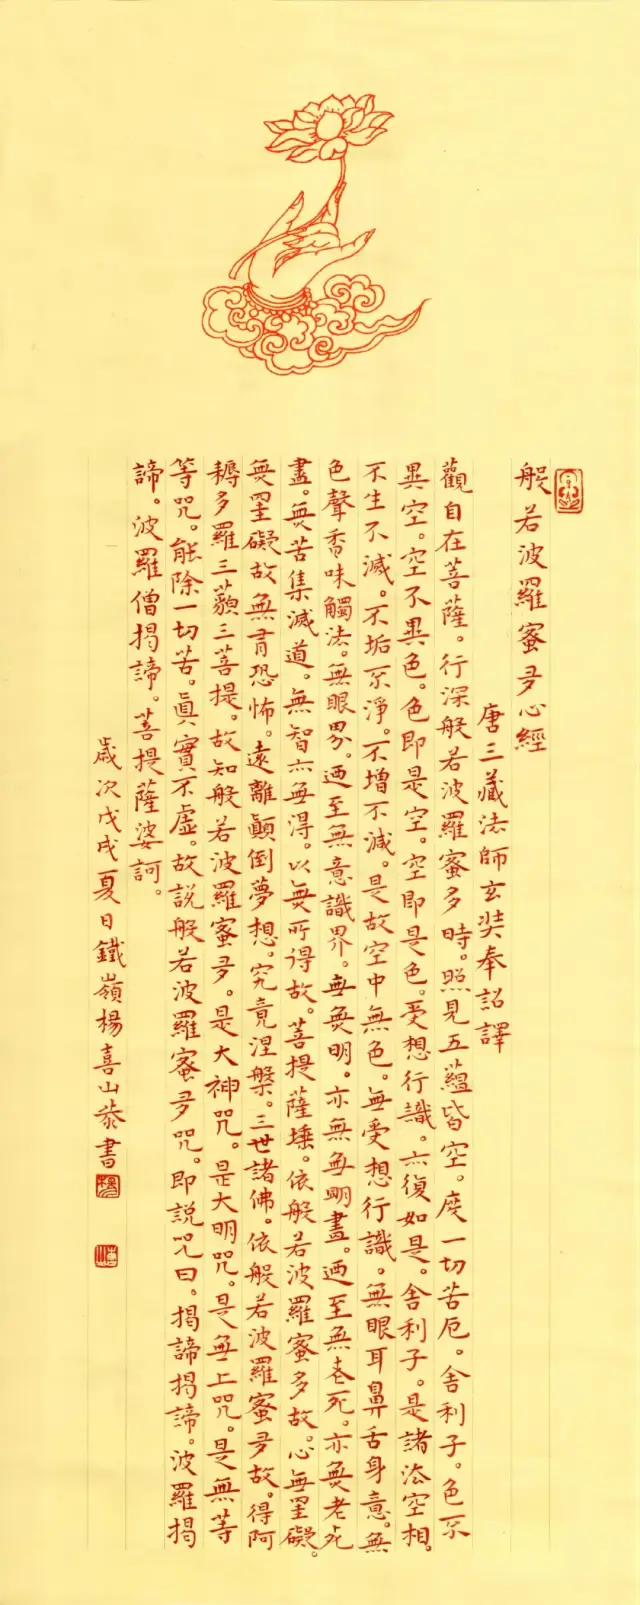 般若波羅蜜多心經
唐三藏法師玄奘奉詔譯
觀自在菩薩。行深般若波羅蜜多時。照見五蘊皆空。度一切苦厄。舍利子。色不
異空。空不異色。色即是空。空即是色。受想行識。亦復如是。舍利子。是諸法空相。
不生不滅。不垢不淨。不增不減。是故空中無色。無受想行識。無眼耳鼻舌身意。無
色聲香味觸法。無眼界。迺至無意識界。無無明。亦無無明盡。迺至無老死。亦無老死
盡。無苦集滅道。無智亦無得。以無所得故。菩提薩埵。依般若波羅蜜多故。心無罣礙。
無罣礙故無有恐怖。遠離顛倒夢想。究竟涅槃。三世諸佛。依般若波羅蜜多故。得阿
耨多羅三藐三菩提。故知般若波羅蜜多。是大神咒。是大明咒。是無上咒。是無等
等咒。能除一切苦。真實不虛。故説般若波羅蜜多咒。即説咒曰。揭諦揭諦。波羅揭
諦。波羅僧揭諦。菩提薩婆訶。
歲次戊戌夏日鐵嶺楊喜山恭書